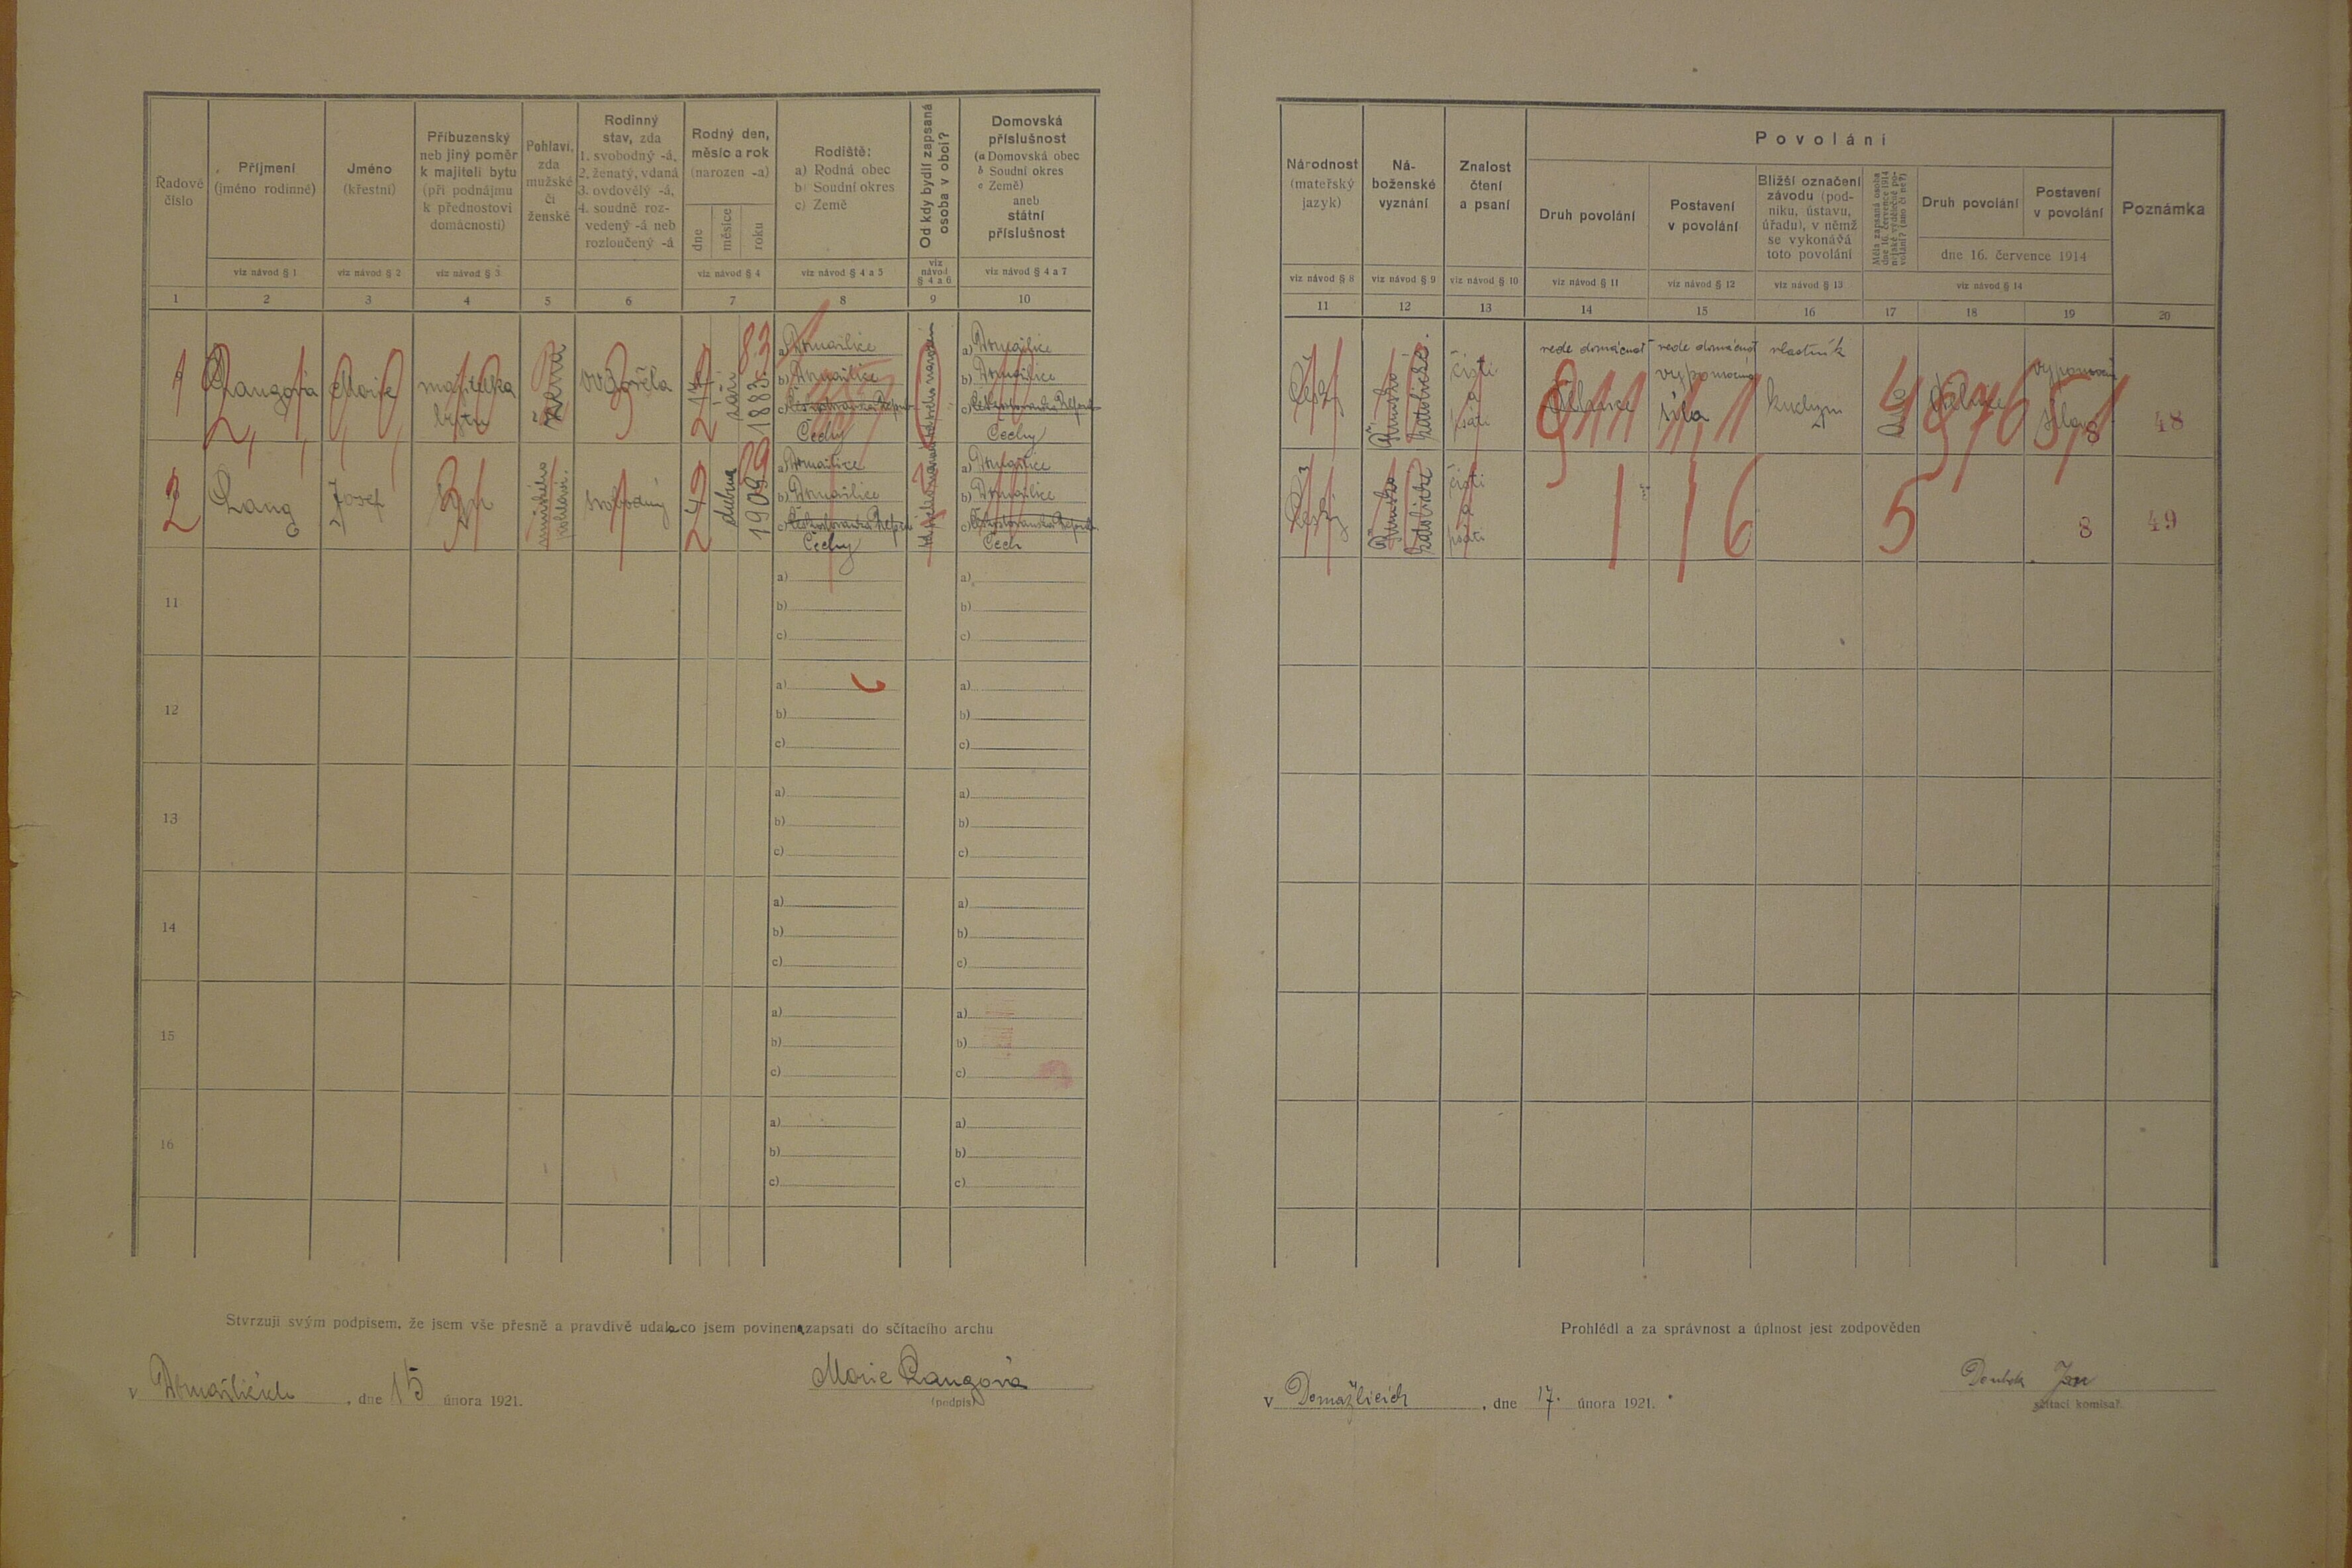 Řadové číslo
Příjmení (jméno rodinné)
Jméno (křestní)
Příbuzenský neb jiný poměr k majiteli bytu (při podnájmu k přednostovi domácnosti)
Pohlaví, zda mužské či ženské
Rodinný stav, zda 1. svobodný -á, 2. ženatý, vdaná 3. ovdovělý -á, 4. soudně rozvedený -á neb rozloučený -á
Rodný den, měsíc a rok (narozen -a)
dne
měsíce
roku
Rodiště: a) Rodná obec b) Soudní okres c) Země
Od kdy bydlí zapsaná osoba v obci?
Domovská příslušnost (a Domovská obec b Soudní okres c Země) aneb státní příslušnost
viz návod § 1
viz návod § 2
viz návod § 3
viz návod § 4
viz návod § 4 a 5
viz návod § 4 a 6
viz návod § 4 a 7
1 2 3 4 5 6 7 8 9 10
1 Langová Marie majitelka bytu žena ovdověla 17 září 1883
a) Domažlice
b) Domažlice
Čechy
a) Domažlice
b) Domažlice
Čechy
2 Lang Josef syn mužského pohlaví svobodný 24 dubna 1909
a) Domažlice
b) Domažlice
Čechy
a) Domažlice
b) Domažlice
Čech
11
a)
b)
c)
a)
b)
c)
12
a)
b)
c)
a)
b)
c)
13
a)
b)
c)
a)
b)
c)
14
a)
b)
c)
a)
b)
c)
15
a)
b)
c)
a)
b)
c)
16
a)
b)
c)
a)
b)
c)
Stvrzuji svým podpisem, že jsem vše přesně a pravdivě udala co jsem povinen zapsati do sčítacího archu
v Domažlicích, dne 15 února 1921.
Marie Langová
(podpis)
Národnost (mateřský jazyk)
Náboženské vyznání
Znalost čtení a psaní
Povolání
Druh povolání
Postavení v povolání
Bližší označení závodu (podniku, ústavu, úřadu), v němž se vykonává toto povolání
Měla zapsaná osoba dne 16. července 1914 nějaké výdělečné povolání? (ano či ne?)
Druh povolání
Postavení v povolání
dne 16. července 1914
Poznámka
viz návod § 8
viz návod § 9
viz návod § 10
viz návod § 11
viz návod § 12
viz návod § 13
viz návod § 14
11 12 13 14 15 16 17 18 19 20
vede domácnost
vede domácnost
vlastník
Římsko katolické
čísti a psáti
síla
48
Římsko katolické
čísti a psáti
1 1 6 5
8
49
Prohlédl a za správnost a úplnost jest zodpověden
v Domažlicích, dne 17. února 1921.
Jan
sčítací komisař.